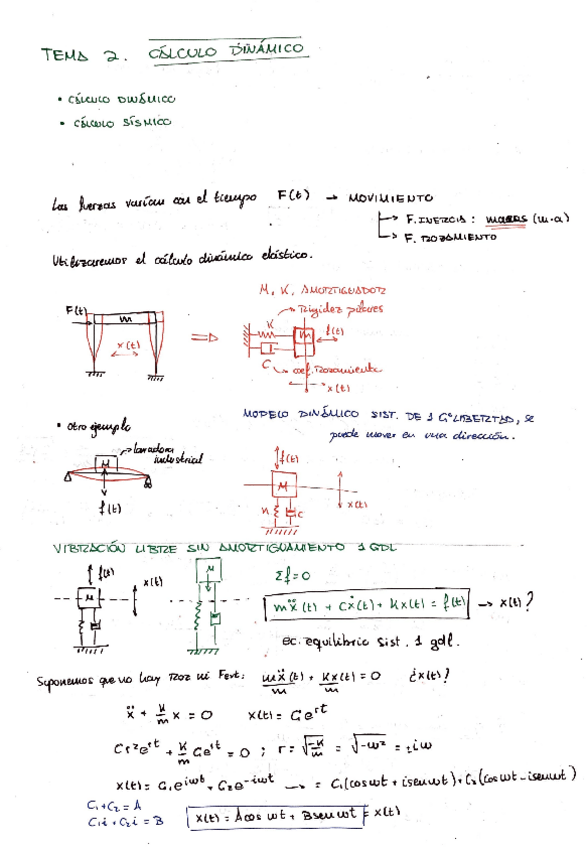 TEMA 2. CÁLCULO DINÁMICO
• CÁLCULO DINÁMICO
• CÁLCULO SÍSMICO
Las fuerzas varían con el tiempo F(t) → MOVIMIENTO
→ F. INERCIA: masas (m·a)
→ F. ROZAMIENTO
Utilizaremos el cálculo dinámico elástico.
M, K, AMORTIGUADOR
→ Rigidez pilares
F(t) m x(t) ⇒ K m f(t)
C → coef. Rozamiento
x(t)
MODELO DINÁMICO SIST. DE 1 Gº LIBERTAD, se
puede mover en una dirección.
• otro ejemplo
→ lavadora
industrial
M
f(t)
f(t)
M
K C x(t)
VIBRACIÓN LIBRE SIN AMORTIGUAMIENTO 1 GDL
f(t) x(t) M
M
Σf=0
mẍ(t) + Cẋ(t) + Kx(t) = f(t) → x(t)?
ec. equilibrio sist. 1 gdl.
Suponemos que no hay Roz ni Fext: mẍ(t)/m + Kx(t)/m = 0 ¿x(t)?
ẍ + K/m x = 0 x(t) = Ce^rt
Cr²e^rt + K/m Ce^rt = 0 ; r = √(-K/m) = √(-ω²) = ±iω
x(t) = C₁e^iωt + C₂e^-iωt → = C₁(cosωt + isenωt) + C₂(cosωt - isenωt)
C₁+C₂ = A
C₁i + C₂i = B
x(t) = A cos ωt + B sen ωt = x(t)